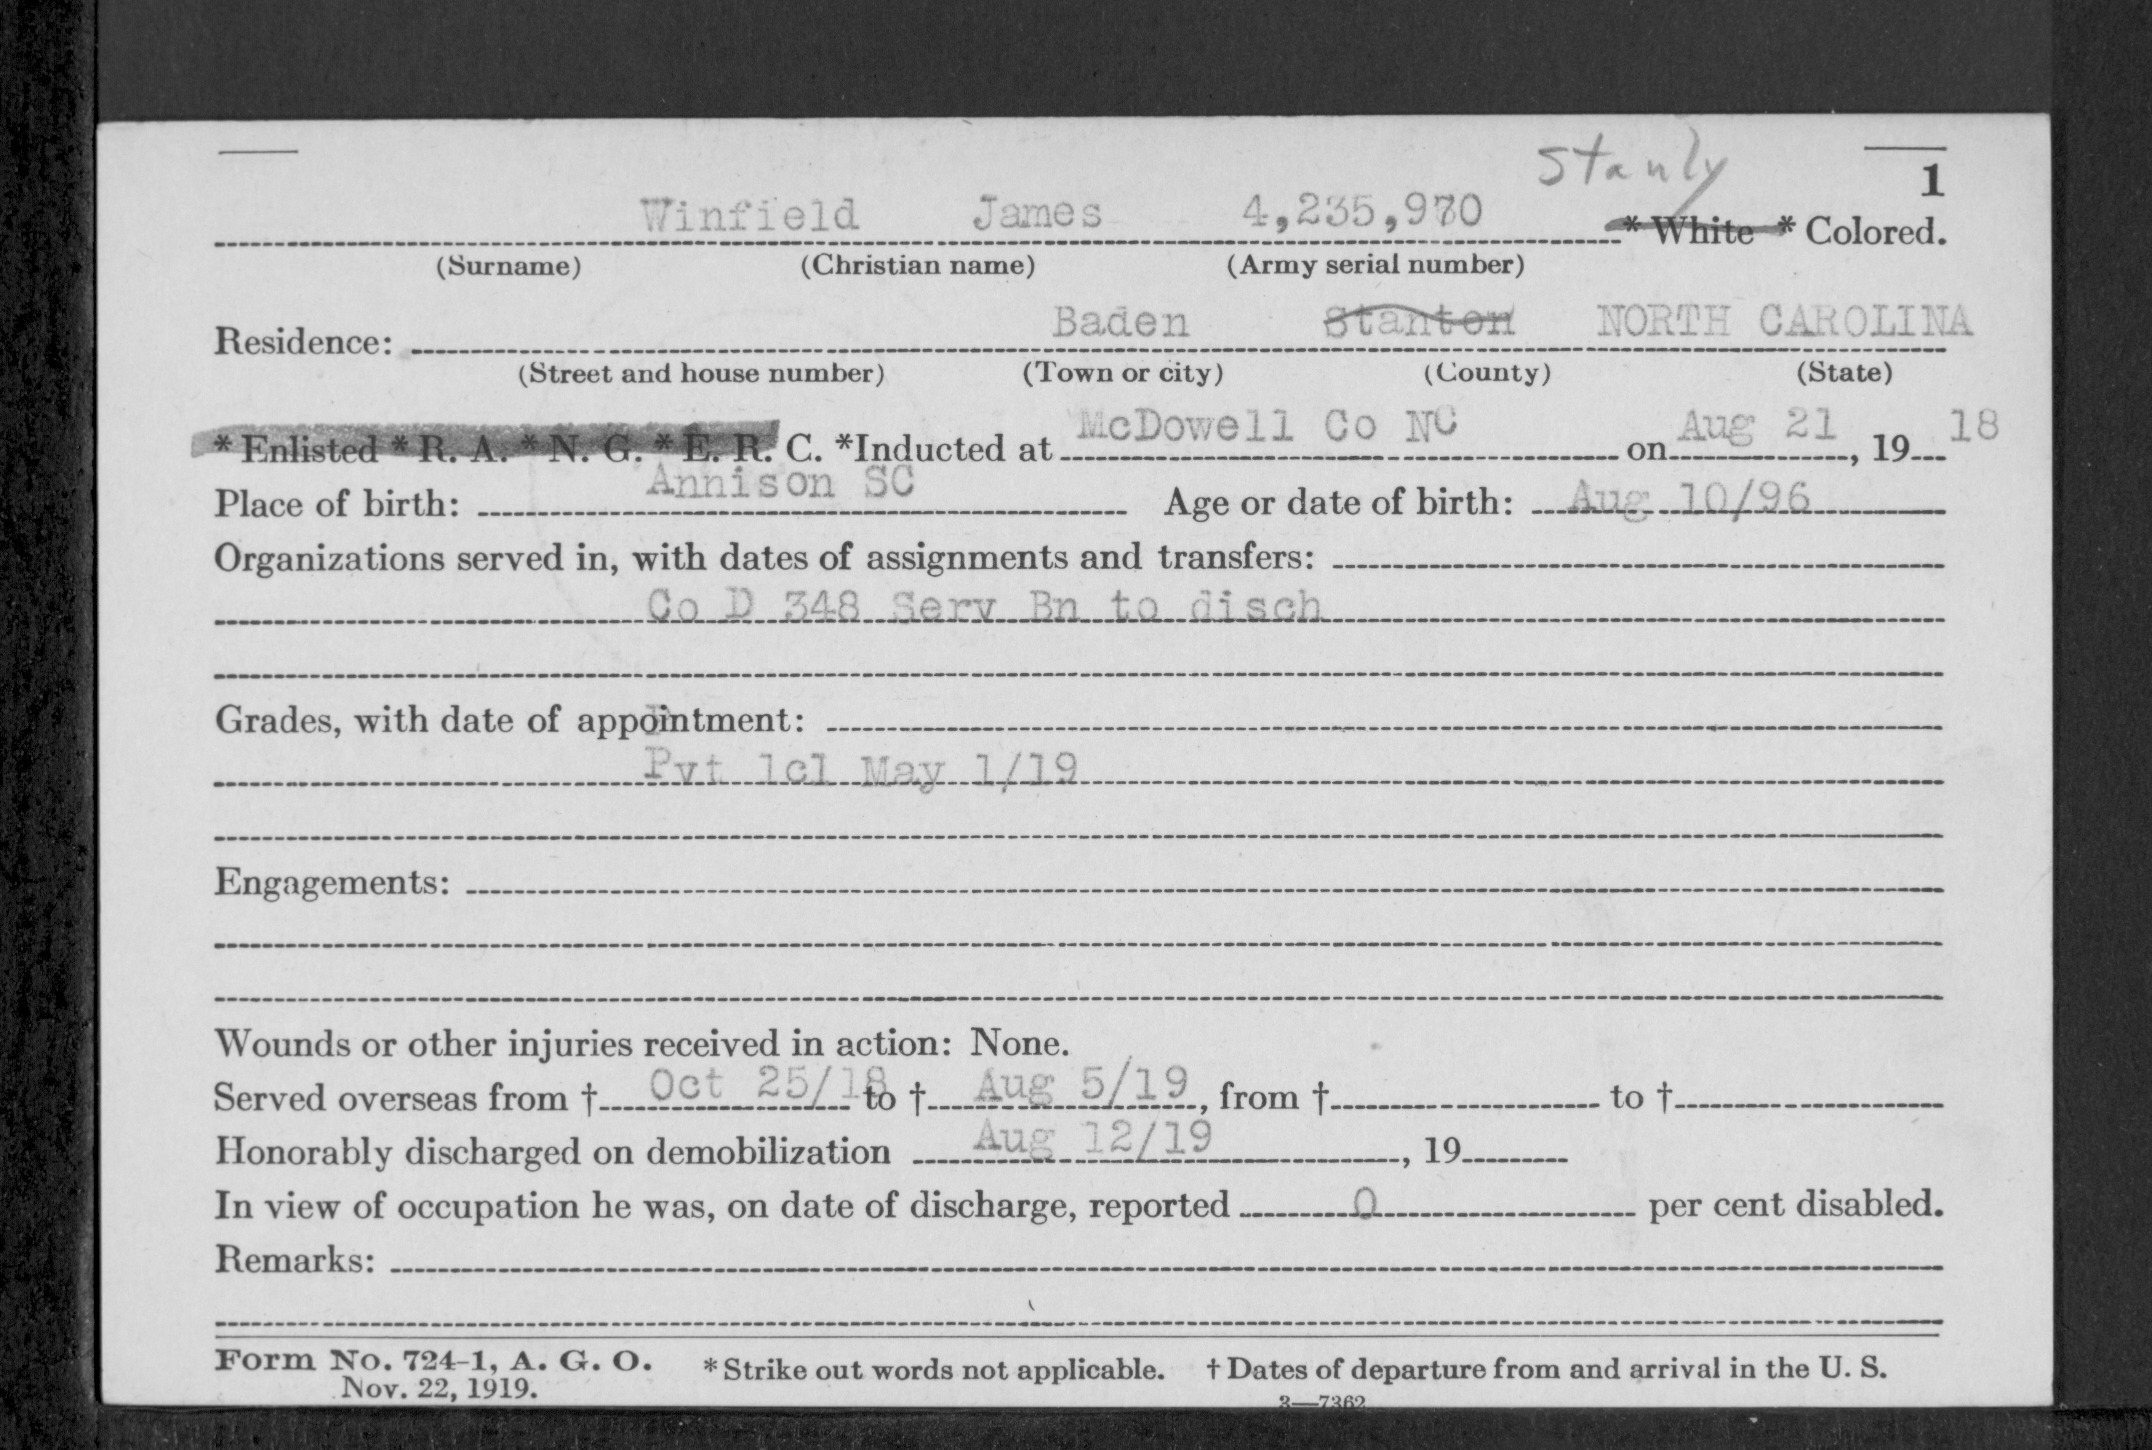 Stanly
1
Winfield James 4,235,970 * White * Colored.
(Surname) (Christian name) (Army serial number)
Residence: Baden Stanton NORTH CAROLINA
(Street and house number) (Town or city) (County) (State)
* Enlisted * R. A. * N. G. * E. R. C. *Inducted at McDowell Co NC on Aug 21, 19 18
Place of birth: Annison SC Age or date of birth: Aug 10/96
Organizations served in, with dates of assignments and transfers:
Co D 348 Serv Bn to disch
Grades, with date of appointment:
Pvt 1cl May 1/19
Engagements:
Wounds or other injuries received in action: None.
Served overseas from † Oct 25/18 to † Aug 5/19, from † to †
Honorably discharged on demobilization Aug 12/19, 19
In view of occupation he was, on date of discharge, reported 0 per cent disabled.
Remarks:
Form No. 724-1, A. G. O. * Strike out words not applicable. † Dates of departure from and arrival in the U. S.
Nov. 22, 1919.
3—7362